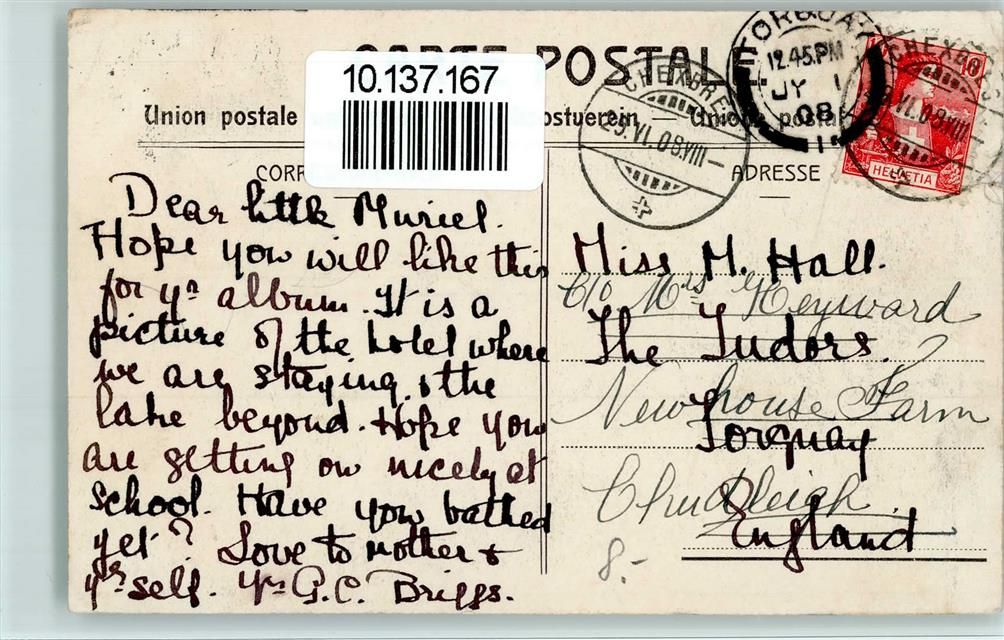 CARTE POSTALE
10.137.167
Union postale ostverein — Union postale
CORR
ADRESSE
TORQUAY
12.45 PM
JY 1
08
CHEXBRES
29.VI.08.VIII—
CHEXBRES
VI.08.VIII
10
HELVETIA
Dear little Muriel.
Hope you will like this
for yr album. It is a
picture of the hotel where
we are staying & the
lake beyond. Hope you
are getting on nicely at
school. Have you bathed
yet? Love to mother &
yrself. Yrs G.C. Briggs.
Miss M. Hall.
C/o Mrs Heyward
The Tudors.
Newhouse Farm
Torquay
Chudleigh.
England
8.-